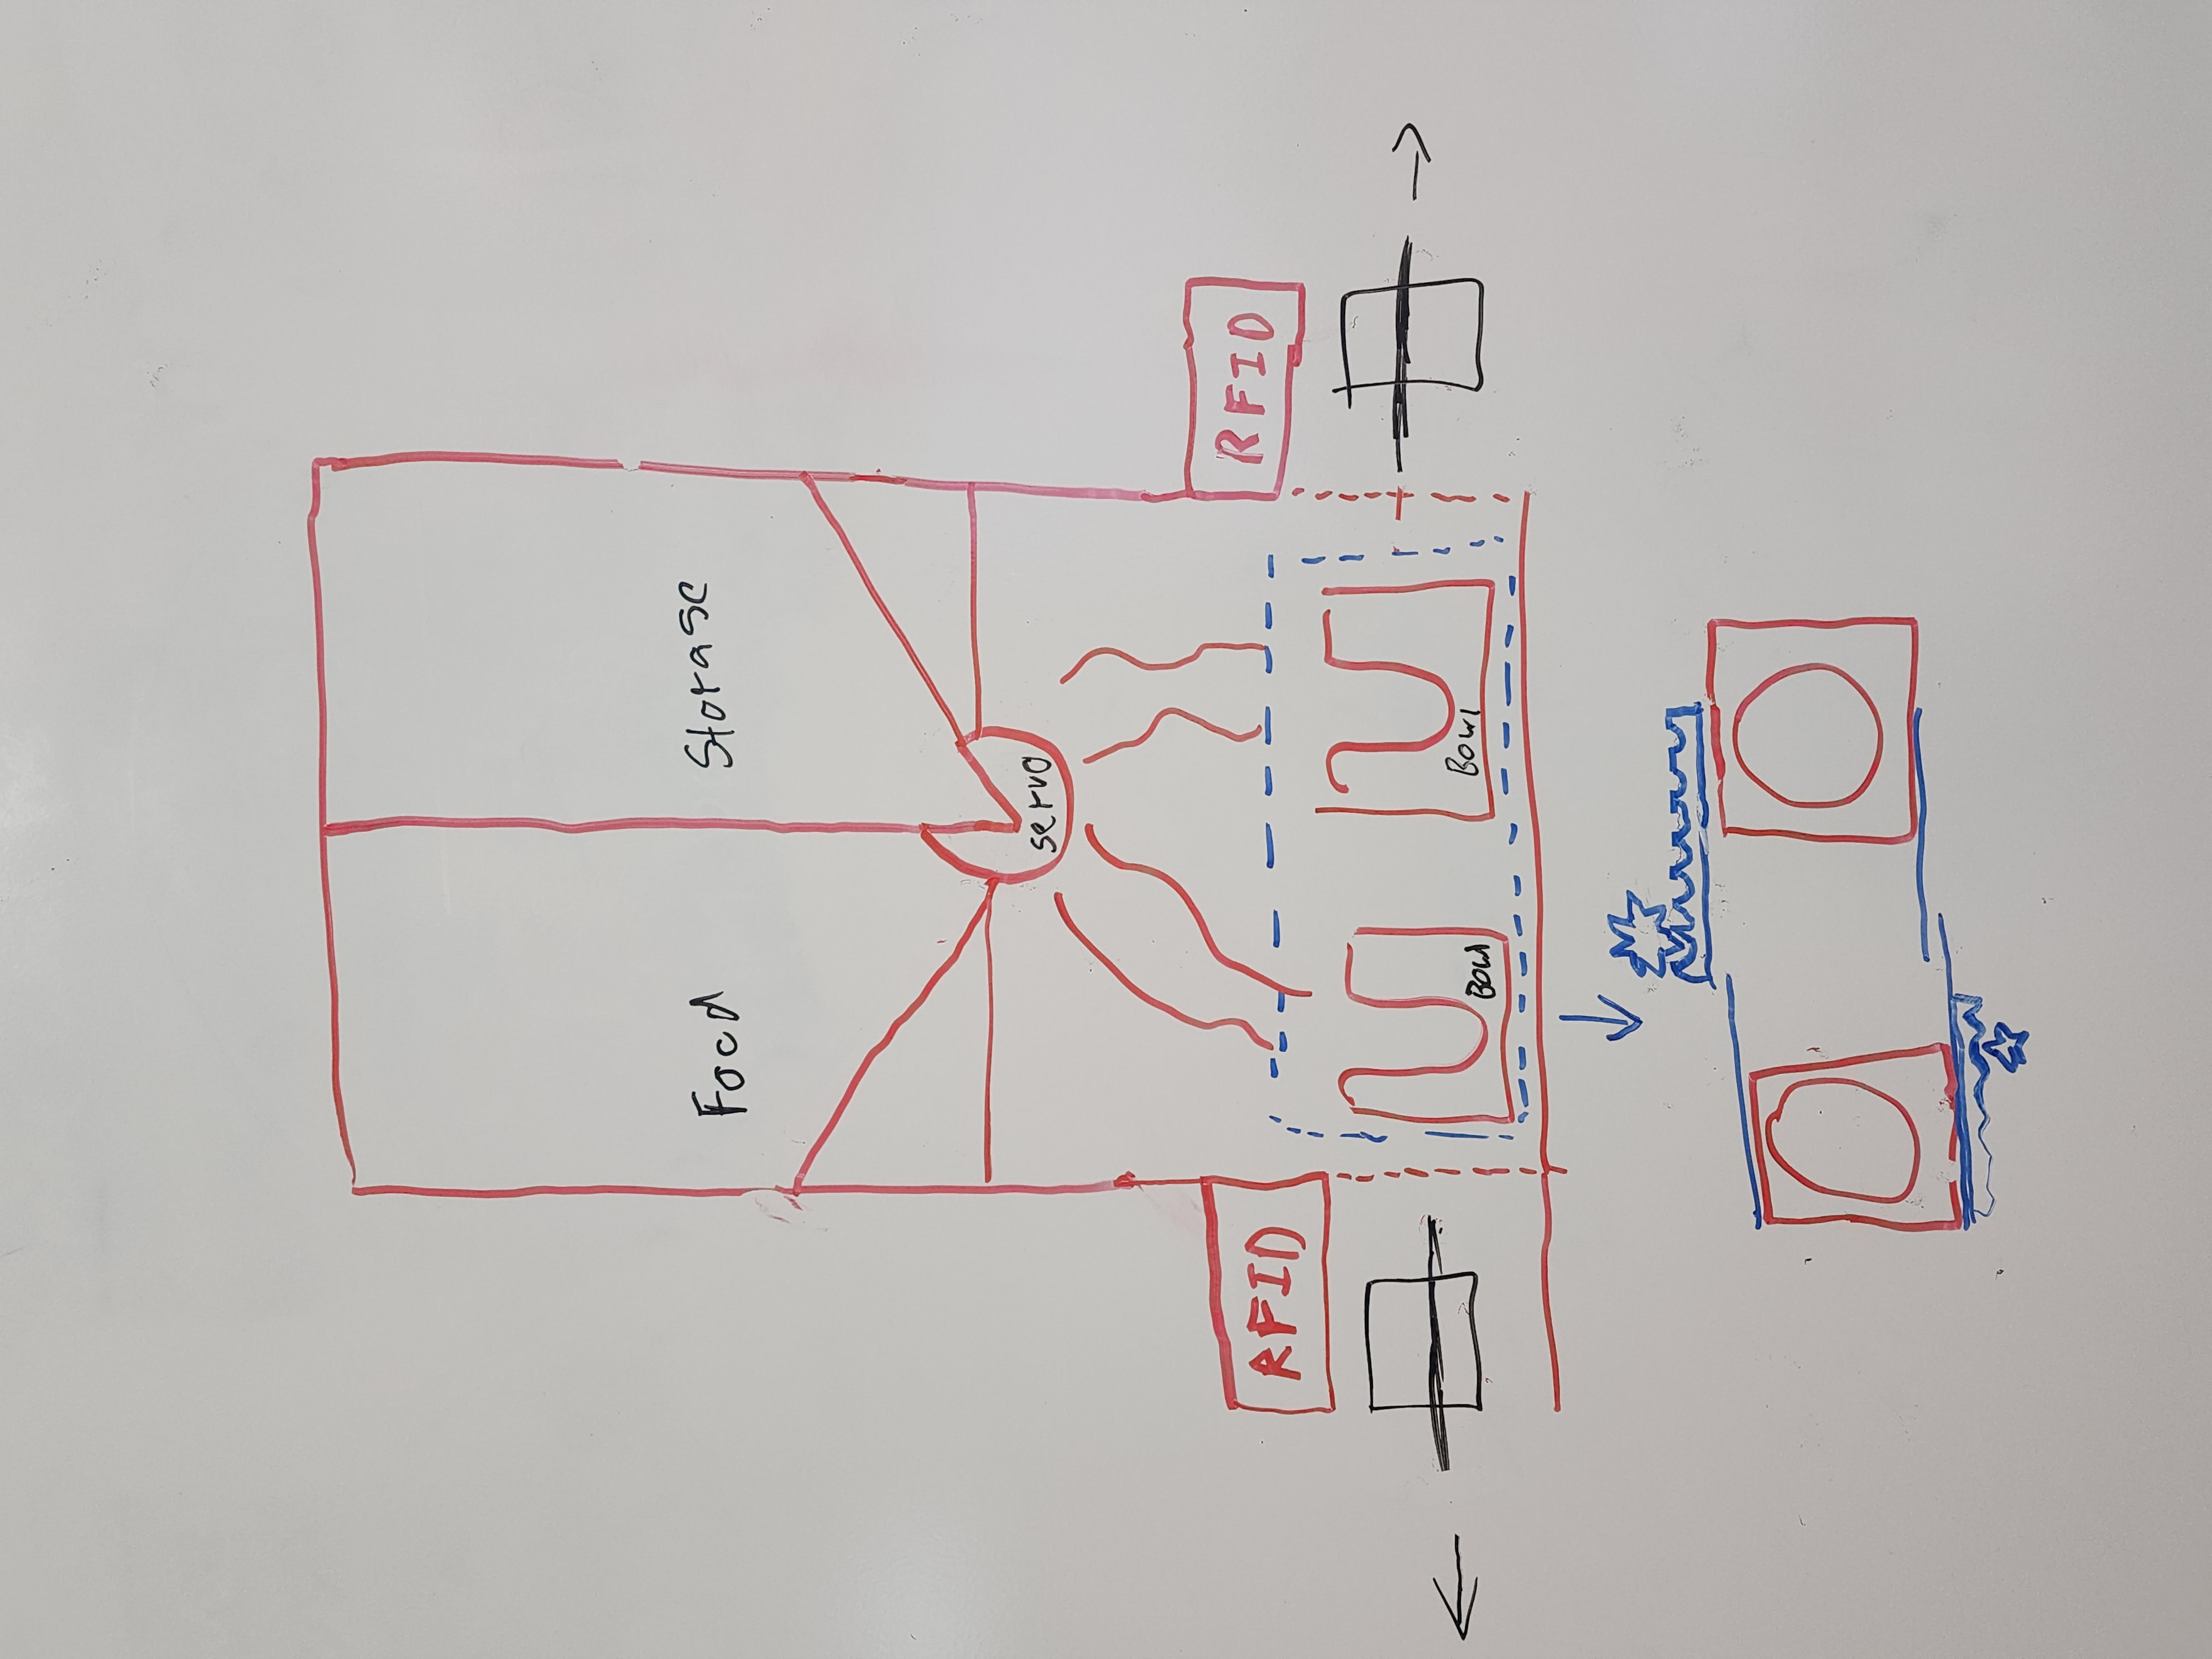 Food
Storage
servo
RFID
RFID
Bowl
Bowl